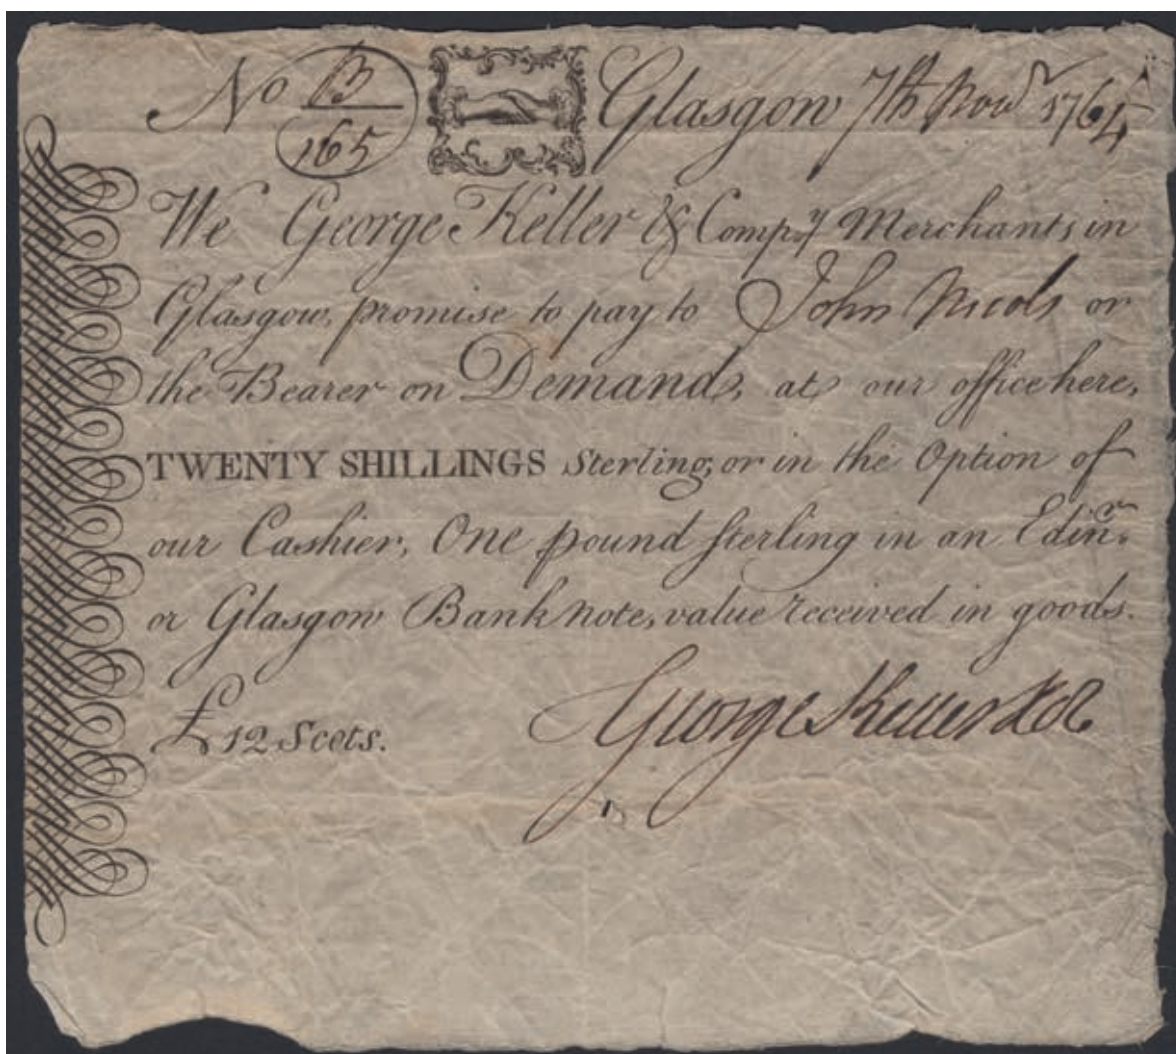 No B/165 Glasgow 7th Novr 1764
We George Keller & Compy. Merchants in
Glasgow, promise to pay to John Nicols or
the Bearer on Demand, at our office here,
TWENTY SHILLINGS Sterling, or in the Option of
our Cashier, One pound sterling in an Edinr.
or Glasgow Bank note, value received in goods.
£12 Scots.
George Keller & Co